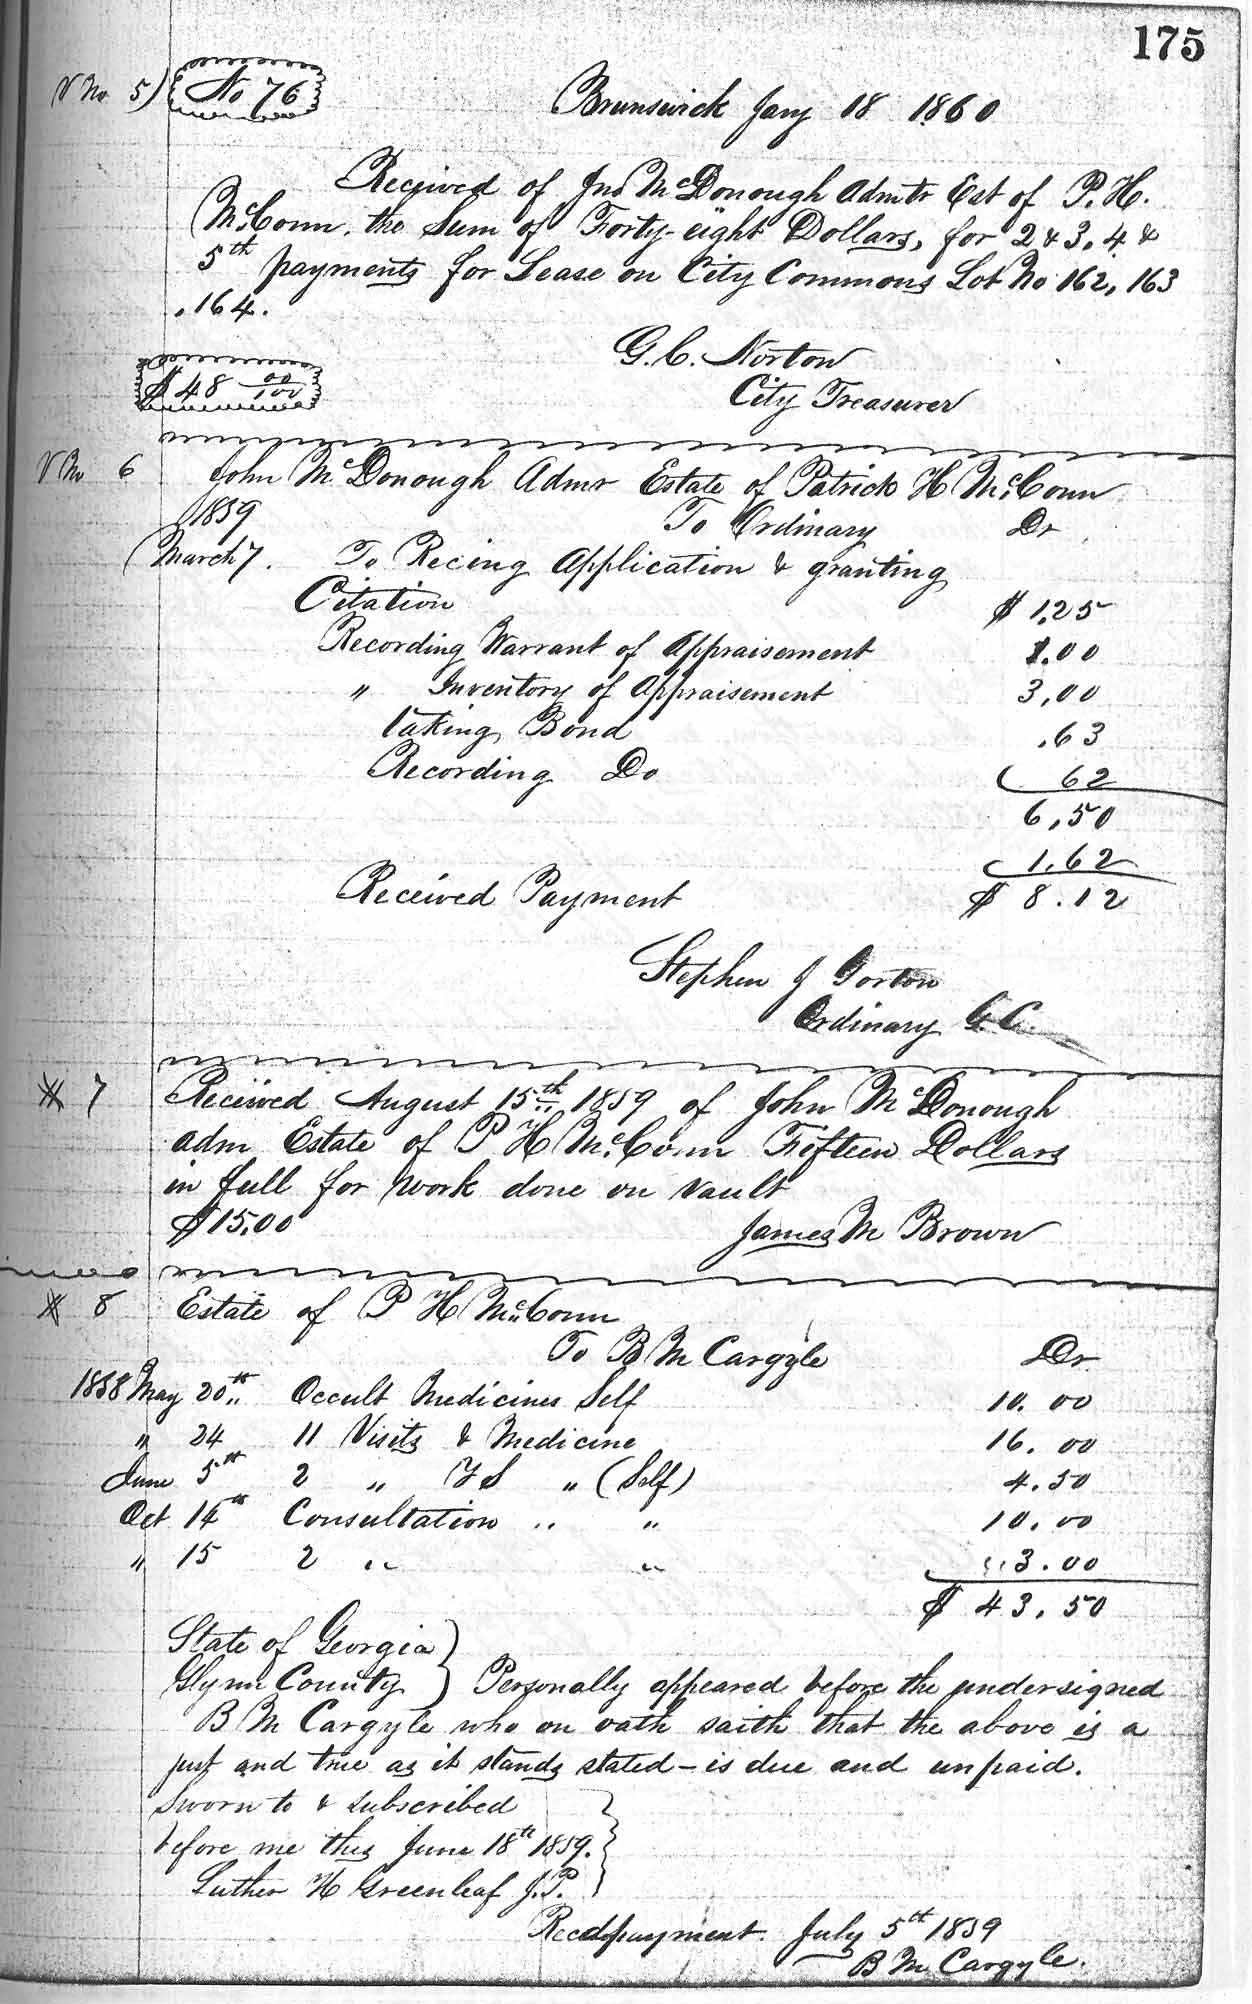 175
V No 5) No 76
Brunswick Jany 18 1860
Received of Jno McDonough Admtr Est of P. H.
McConn. the Sum of Forty-eight Dollars, for 2 & 3. 4 &
5th payments for Lease on City Commons Lot No 162, 163
, 164.
G. C. Norton
$ 48 00/100
City Treasurer
V No 6 John McDonough Admr Estate of Patrick H McConn
1859 To Ordinary Dr
March 7. To Recing Application & granting
Citation $ 1,25
Recording Warrant of Appraisement 1.00
" Inventory of Appraisement 3,00
taking Bond .63
Recording Do 62
6,50
1.62
Received Payment $ 8.12
Stephen J Gorton
Ordinary G. C.
7 Received August 15th 1859 of John McDonough
adm Estate of P H McConn Fifteen Dollars
in full for work done on vault
$15.00 James M Brown
8 Estate of P H McConn
To B M Cargyle Dr
1858 May 20th Occult Medicines Self 10. 00
" 24 11 Visits & Medicine 16. 00
June 5th 2 " " (Self) 4.50
Oct 14th Consultation " " 10.00
" 15 2 " " 3.00
$ 43.50
State of Georgia )
Glynn County ) Personally appeared before the undersigned
B M Cargyle who on oath saith that the above is a
just and true as it stands stated – is due and unpaid.
Sworn to & subscribed
before me this June 18th 1859.
Luther H Greenleaf J.P.
Recd payment. July 5th 1859
B M Cargyle.